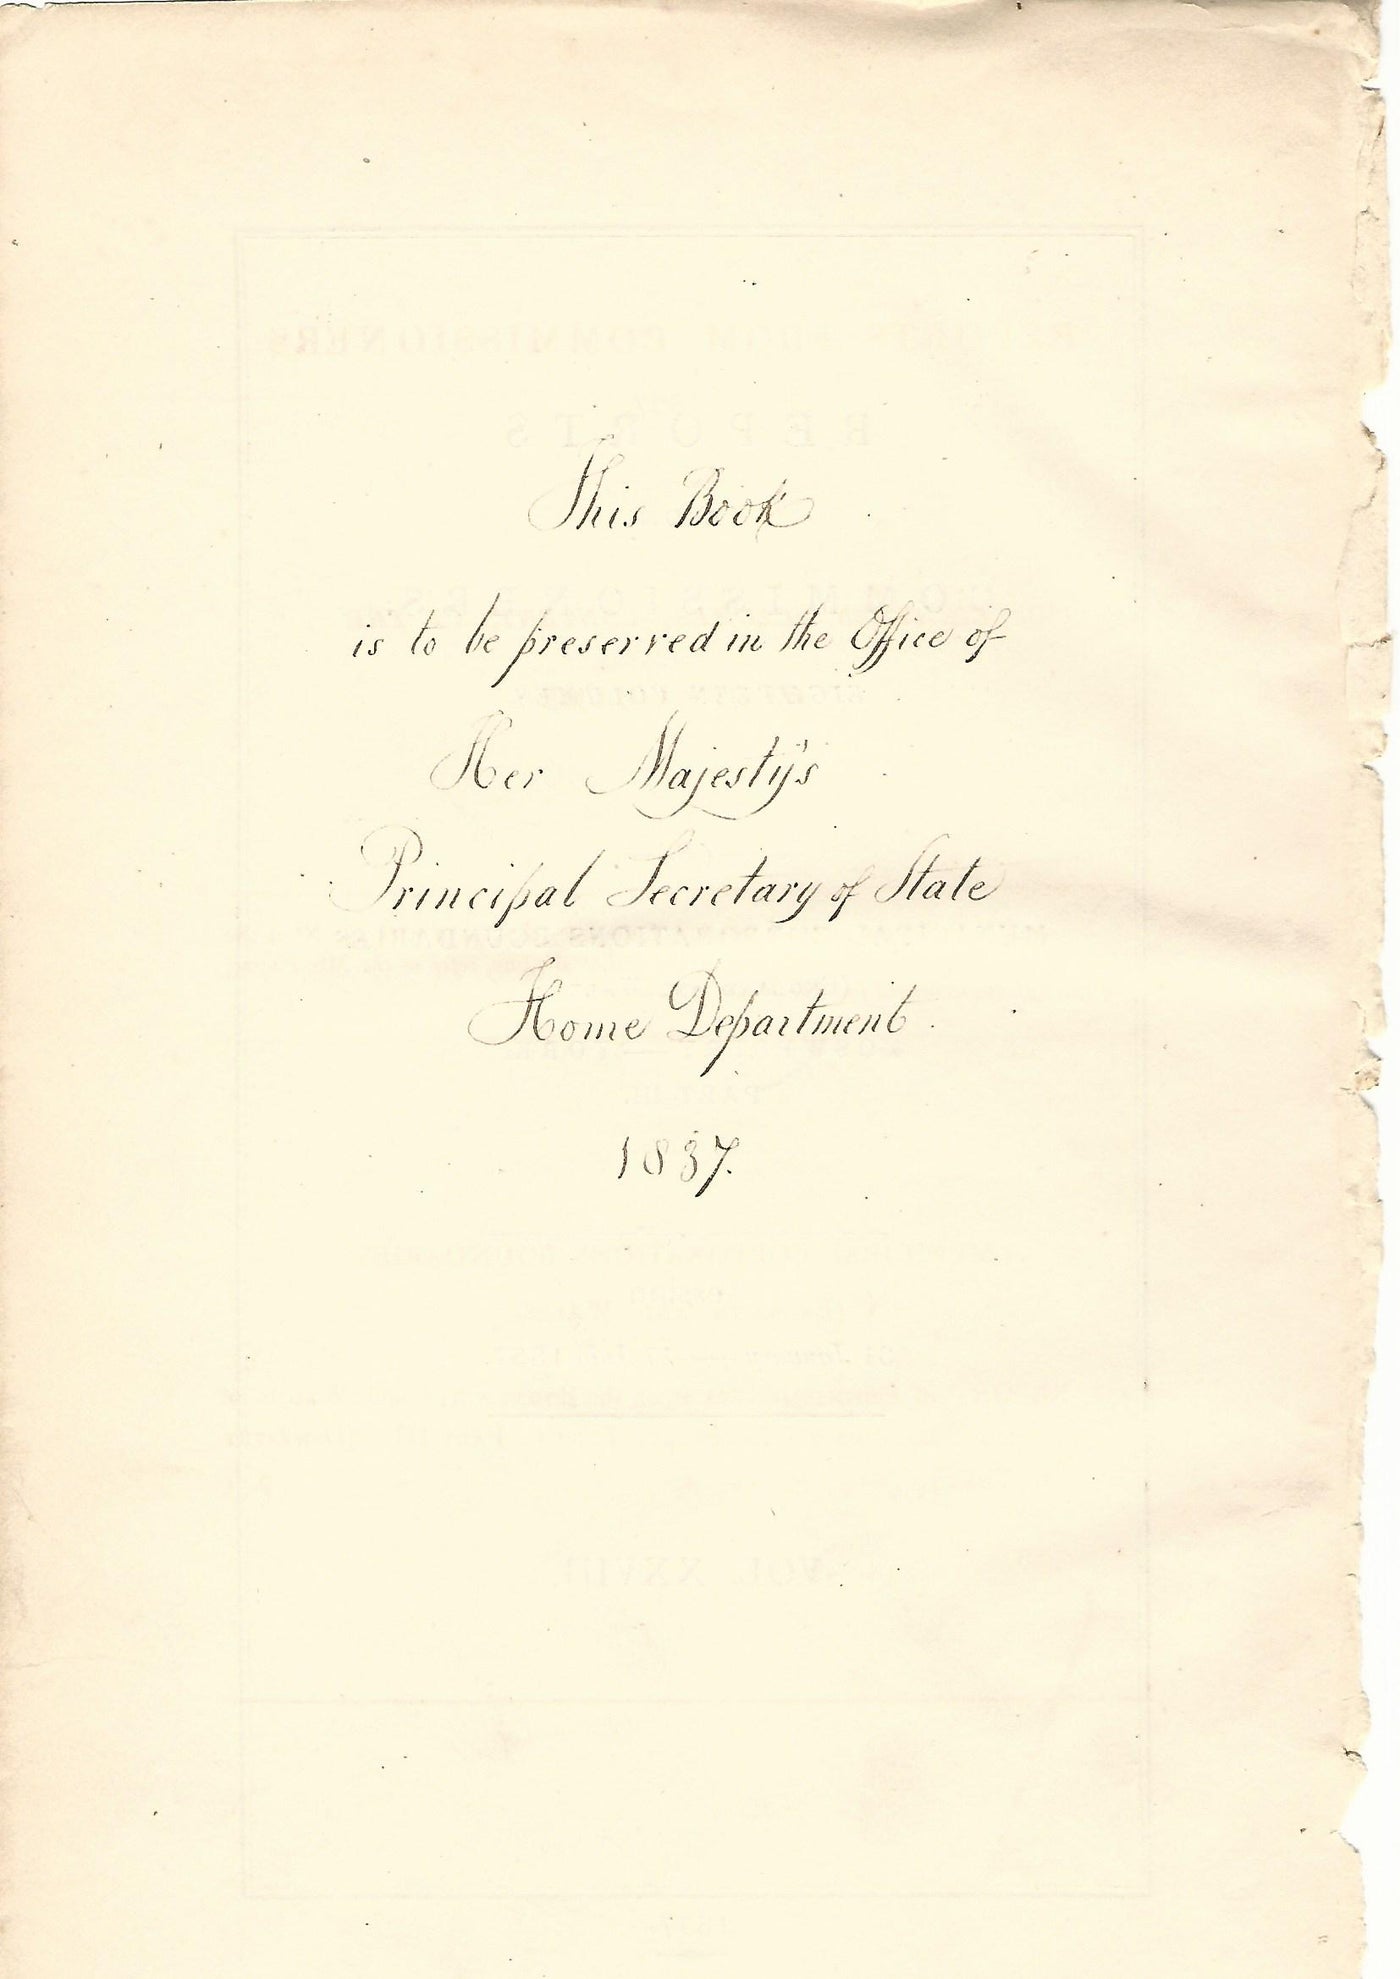 This Book
is to be preserved in the Office of
Her Majesty's
Principal Secretary of State
Home Department.
1837.